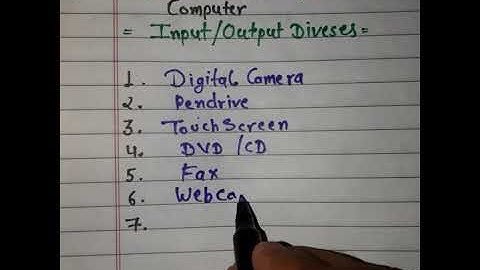 Computer
= Input/Output Diveses =
1. Digital Camera
2. Pendrive
3. Touch Screen
4. DVD /CD
5. Fax
6. Webca
7.